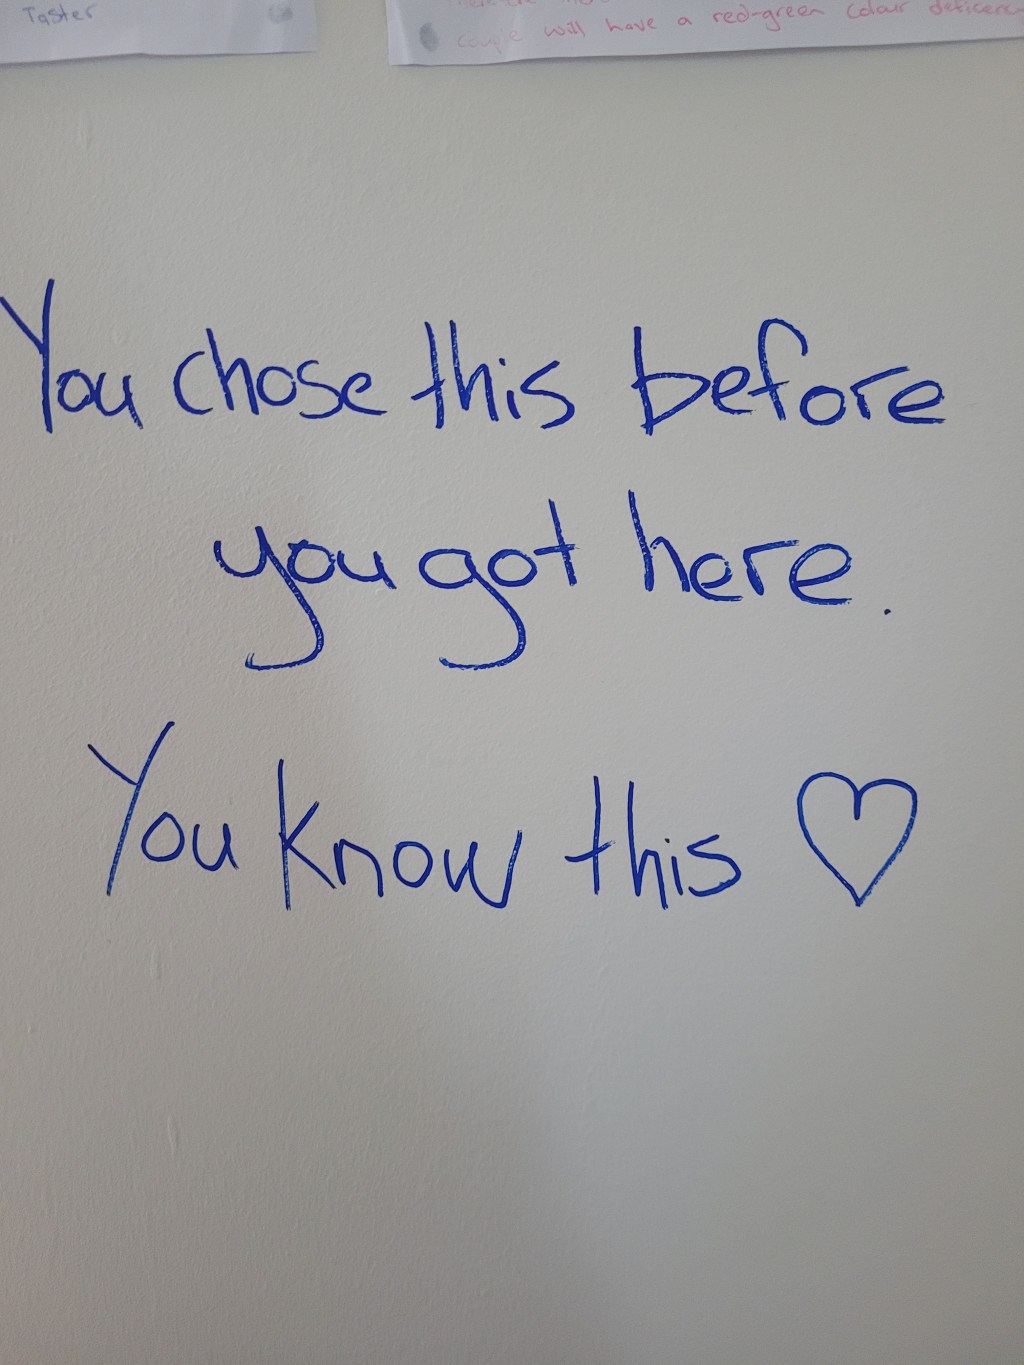 Taster
will have a red-green colour
You chose this before
you got here.
You know this ♡